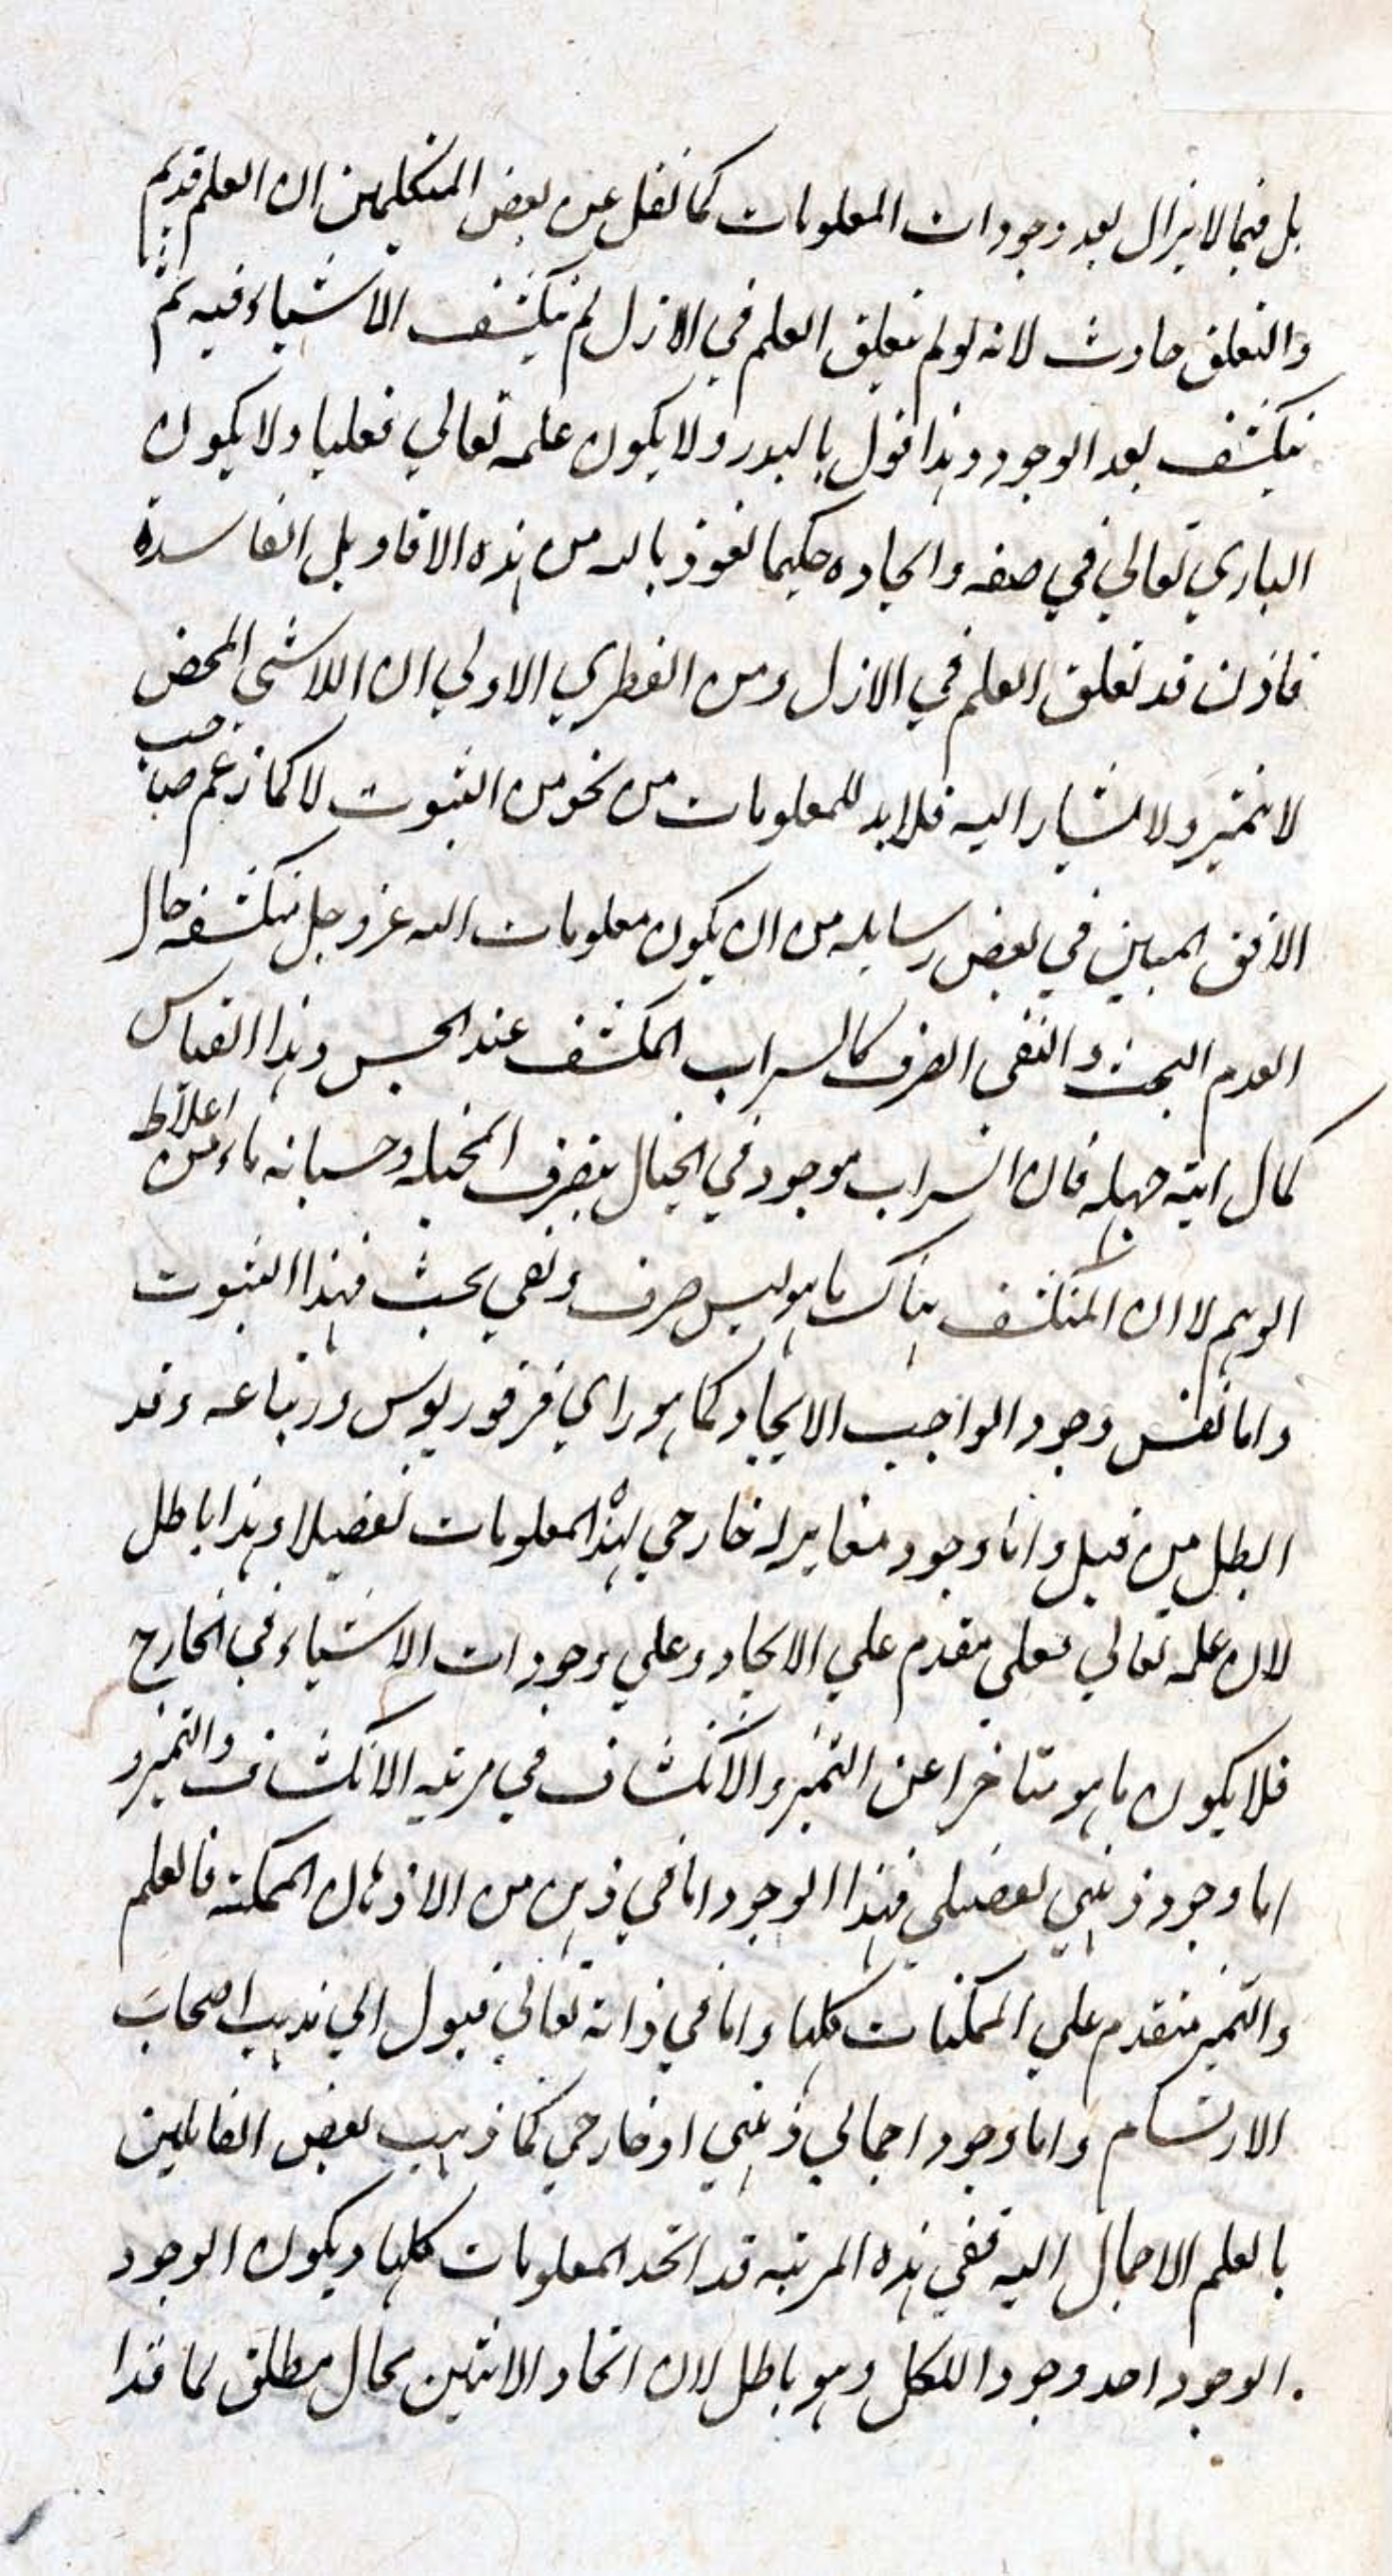 بل فيما لا يزال بعد وجودات المعلومات كما نقل عن بعض المتكلمين ان العلم قديم
والتعلق حادث لانه لو لم يتعلق العلم في الازل لم ينكشف الاشياء فيه ثم
ينكشف بعد الوجود وهذا قول بالبدر ولا يكون علمه تعالي فعليا ولا يكون
الباري تعالي في صفه وايجاده حكيما نعوذ بالله من هذه الاقاويل الفاسدة
فاذن قد تعلق العلم في الازل ومن الفطري الاولي ان اللاشي المحض
لا يتميز ولا يشار اليه فلا بد للمعلومات من نحو من الثبوت لا كما زعم صاحب
الافق المبين في بعض رسايله من ان يكون معلومات الله عز وجل منكشفه حال
العدم البحث والنفي الصرف كالسراب المكشف عند الحس وهذا القياس
كمال اية جهله فان السراب موجود في الخيال بتصرف المخيله وحسبانه ماء من اغلاط
الوهم لا ان المنكشف هناك ما هو ليس صرف ونفي بحث فهذا الثبوت
واما نفس وجود الواجب الايجاد كما هو راي فرفوريوس واتباعه وقد
ابطل من قبل واما وجود مغاير له خارجي لهذه المعلومات تفصيلا وهذا باطل
لان علمه تعالي فعلي مقدم علي الايجاد وعلي وجودات الاشياء في الخارج
فلا يكون ما هو متاخرا عن التميز والانكشاف في مرتبه الانكشاف والتميز و
اما وجود ذهني تفصيلي فهذا الوجود اما في ذهن من الاذهان الممكنه فالعلم
والتميز متقدم علي الممكنات كلها واما في ذاته تعالي فيول الي مذهب اصحاب
الارتسام واما وجود اجمالي ذهني او خارجي كما ذهب بعض القايلين
بالعلم الاجمال اليه ففي هذه المرتبه قد اتحد المعلومات كلها ويكون الوجود
الوجود احد وجودا للكل وهو باطل لان اتحاد الاثنين محال مطلق لما قدا